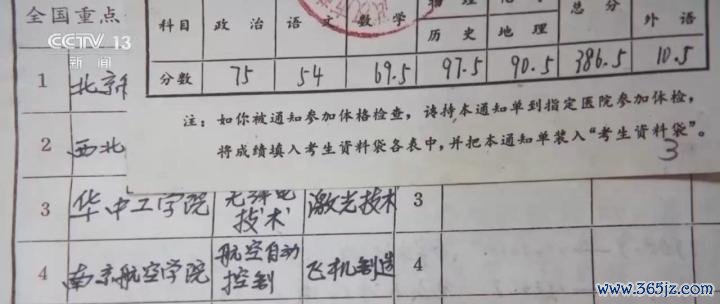 全国重点
CCTV 13
新闻
科目 政治 语文 数学 物理 总分 外语
历史 地理
分数 75 54 69.5 97.5 90.5 386.5 10.5
注：如你被通知参加体格检查，请持本通知单到指定医院参加体检，
将成绩填入考生资料袋各表中，并把本通知单装入“考生资料袋”。
3
1 北京
2 西北
3 华中工学院 无线电技术 激光技术 3
4 南京航空学院 航空自动控制 飞机制造 4
www.365jz.com